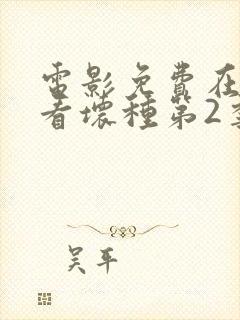 電影免費在
看壞種第2季
吴平